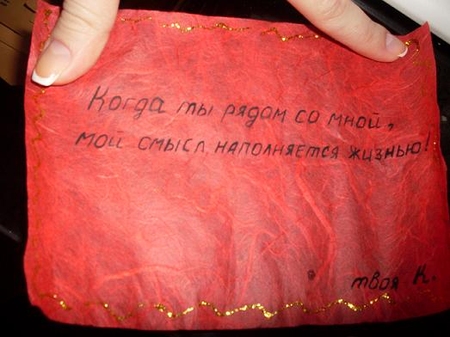 Когда ты рядом со мной,
мой смысл наполняется жизнью!
твоя К.